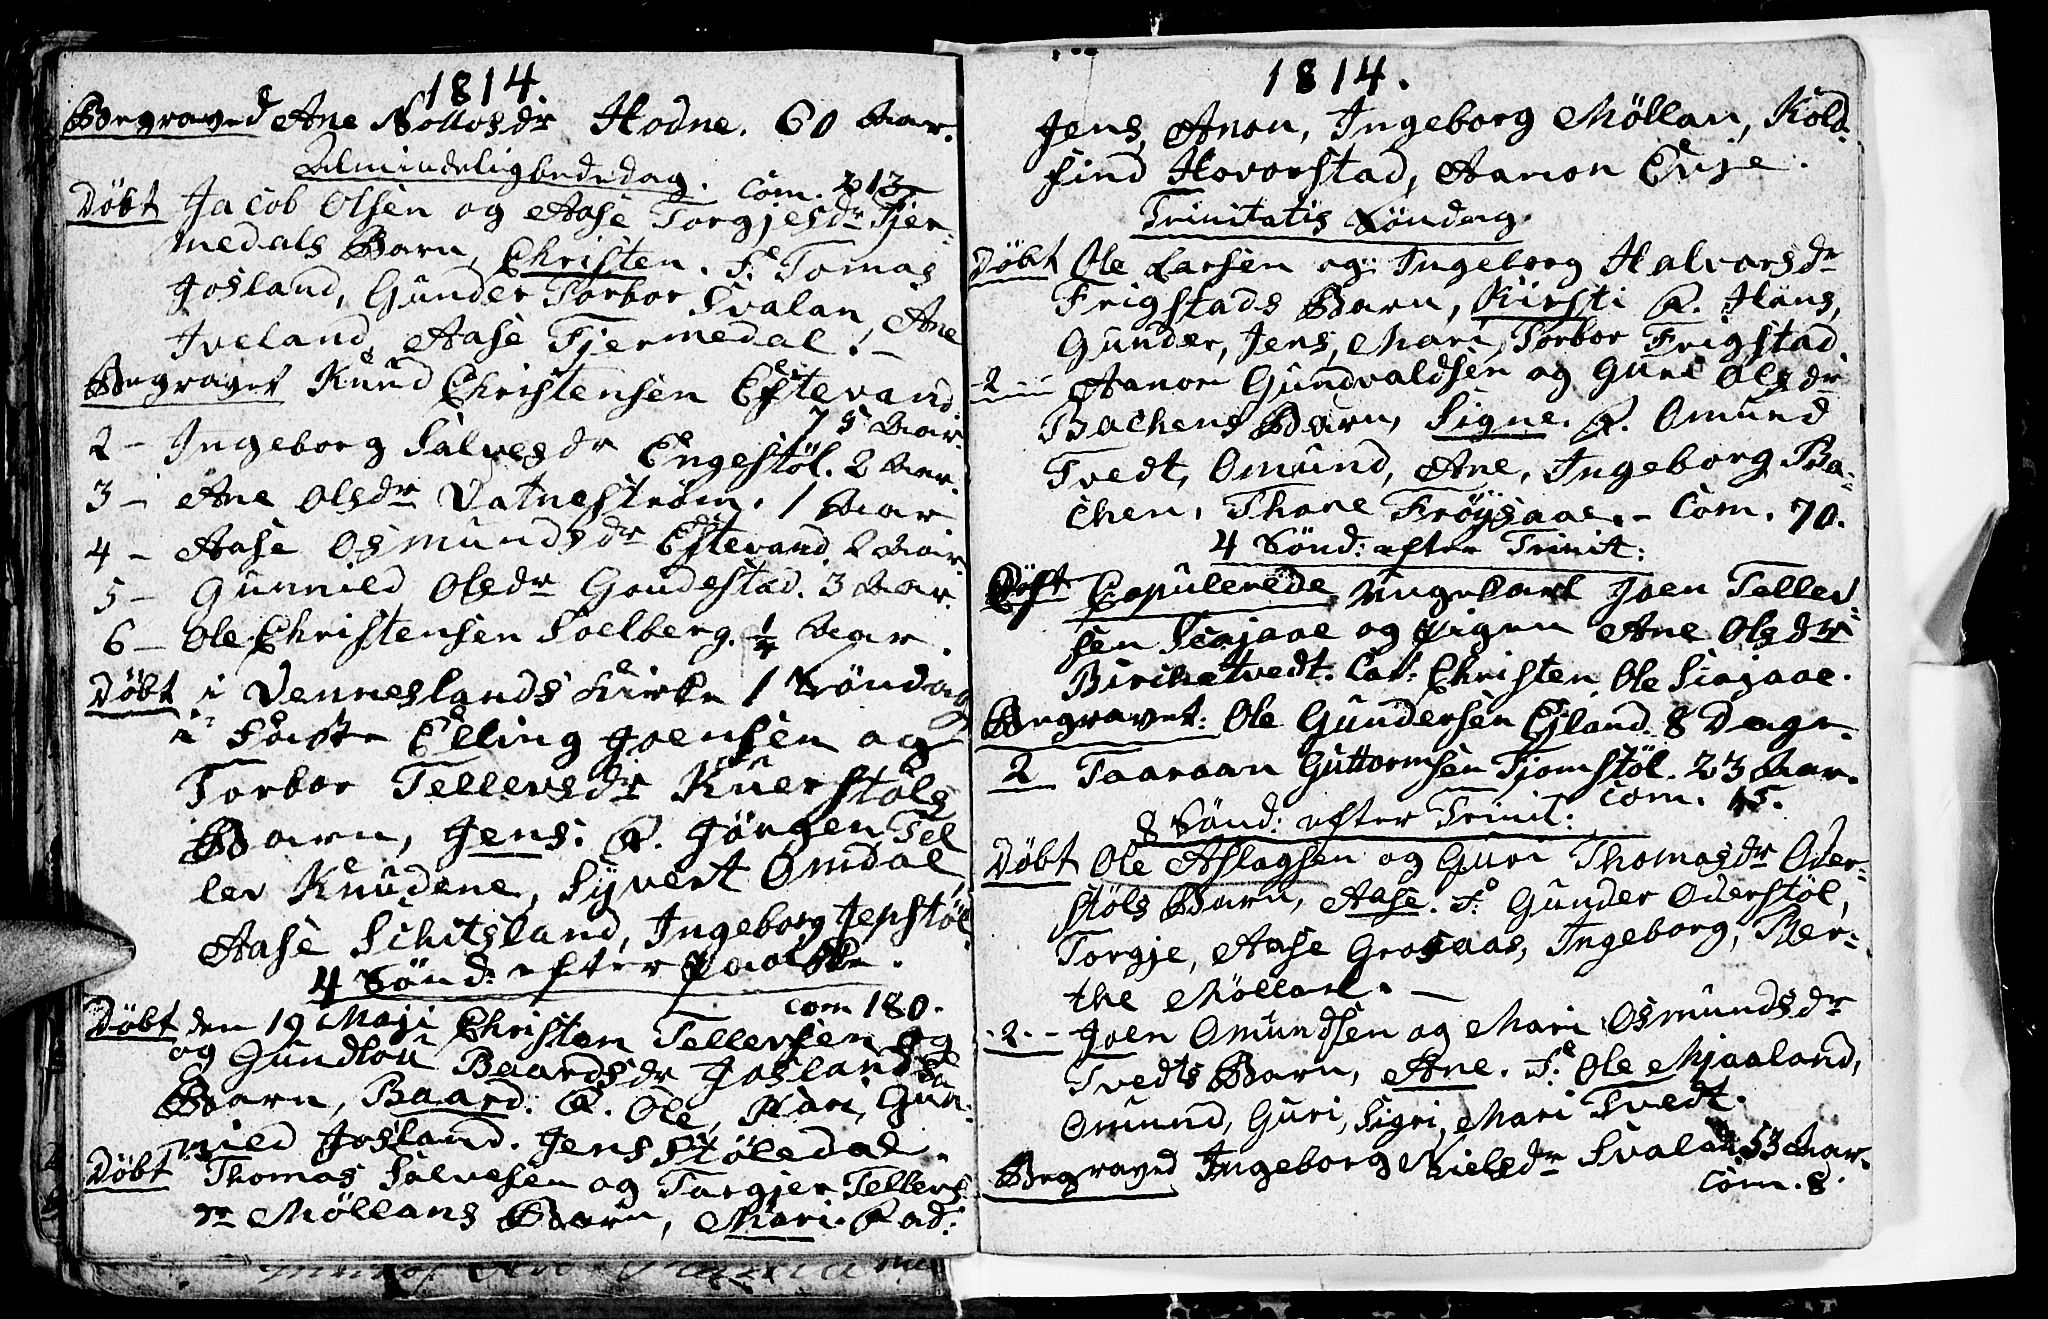 1814.
Begraved Ane Nollosdr Hodne. 60 Aar.
Almindeligbededag. Com. 213
Döbt Jacob Olsen og Aase Torgjesdr Fjer-
medals Barn, Christen. F. Tomas
Josland, Gunder Torbor Svalan, Ane
Iveland, Aase Fjermedal.-
Begravet Knud Christensen Eftevand.
75 Aar.
2 - Ingeborg Salvesdr Engestöl. 2 Aar.
3 - Ane Olsdr Vatneström. 1 Aar.
4 - Aase Osmundsdr Eftevand 2 Aar.
5 - Gunnild Olsdr Goudestad. 3 Aar.
6 - Ole Christensen Soelberg. 1/4 Aar.
Döbt i Venneslands Kirke 1 Söndag
i Faste Elling Joensen og
Torbor Tellevsdr Kuerstöls
Barn, Jens. F. Jörgen Tel
lev Knudene, Syvert Omdal,
Aase Schitsland, Ingeborg Jepstöl.
4 Sönd: efter Paaske.
Com 180.
Döbt den 19 Maji Christen Tellevsen og
og Gundlou Baardsdr Joslands
Barn, Baard. F. Ole, Kari, Gun-
nild Josland. Jens Stöledal.
Döbt Thomas Salvesen og Torgjer Tellevs
dr Möllans Barn, Mari. Fad:
1814.
Jens, Anon, Ingeborg Möllan, Kold-
find Hovorstad, Aanon Evje.
Trinitatis Söndag.
Döbt Ole Larsen og Ingeborg Halvorsdr
Frigstads Barn, Kirsti F. Hans,
Gunder, Jens, Mari, Torbor Frigstad.
-2- Aanon Gundvaldsen og Guri Olsdr
Bachens Barn, Signe. F. Omund
Tvedt, Omund, Ane, Ingeborg Ba-
chen, Thore Fröysaae.- Com. 70.
4 Sönd: efter Trinit:
Copulerede Ungekarl Joen Tellev-
sen Siejaae og Pigen Ane Olsdr
Birchetvedt. Cav: Christen, Ole Siejaae.
Begravet: Ole Gundersen Ejland. 8 Dage.
2 Taaraan Guttormsen Tjomstöl. 23 Aar.
Com. 15.
8 Sönd: efter Trinit:
Döbt Ole Aslagsen og Guri Thomasdr Over-
stöls Barn, Aase. F. Gunder Overstöl,
Torgje, Aase Grosaas, Ingeborg, Ber-
the Möllan.-
-2- Joen Omundsen og Mari Osmundsdr
Tvedts Barn, Ane. F. Ole Mjaaland,
Omund, Guri, Sigri, Mari Tvedt.
Begraved Ingeborg Nielsdr Svalan 53 Aar.
Com. 8.